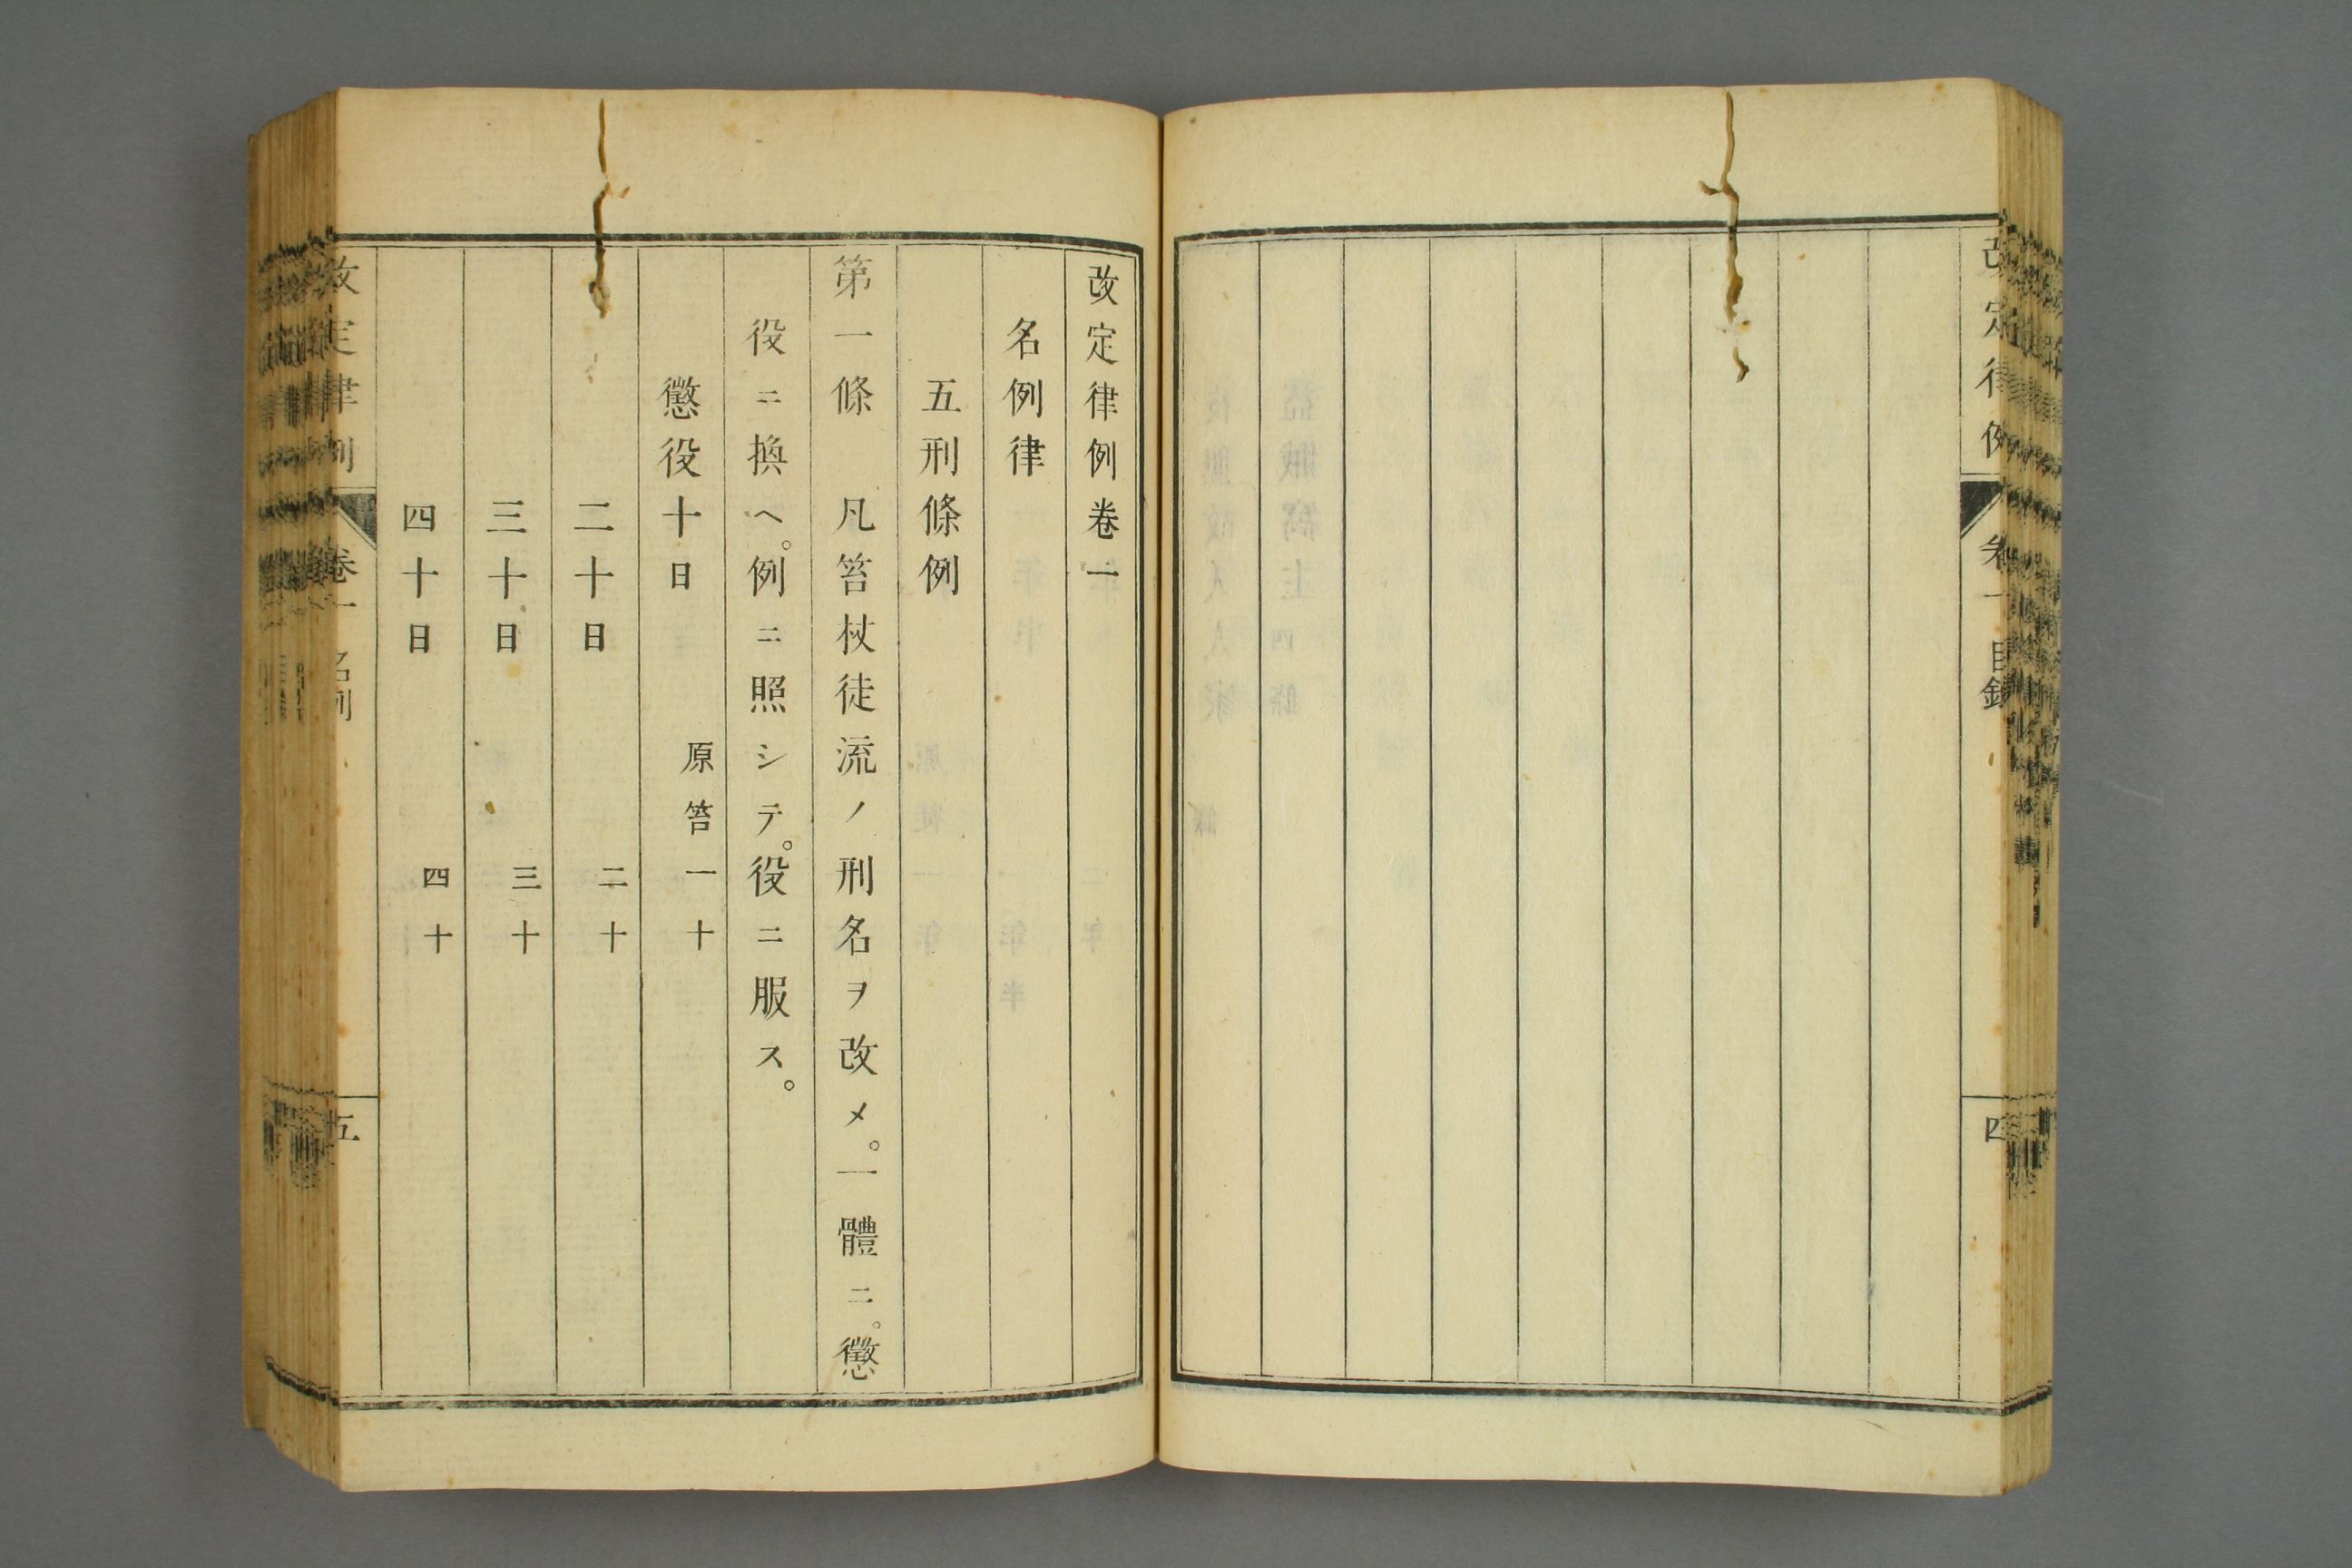 改定律例
卷一
目録
四
改定律例卷一
名例律
五刑條例
第一條　凡笞杖徒流ノ刑名ヲ改メ。一體ニ。懲
役ニ換ヘ。例ニ照シテ。役ニ服ス。
懲役十日　原笞一十
二十日　二十
三十日　三十
四十日　四十
改定律例
卷一
名例
五